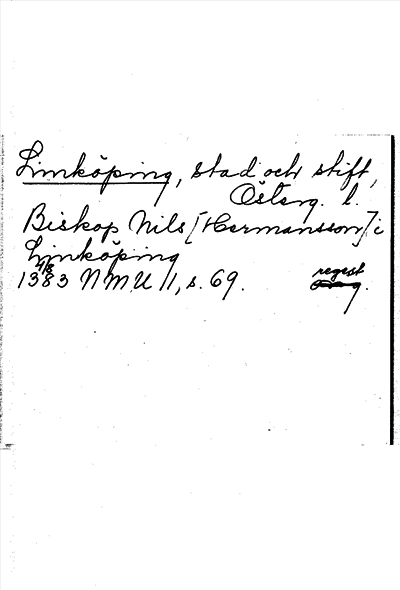 Linköping, stad och stift,
Österg. l.
Biskop Nils [Hermansson] i
Linköping
4/8
1383 NMU II, s. 69. regest